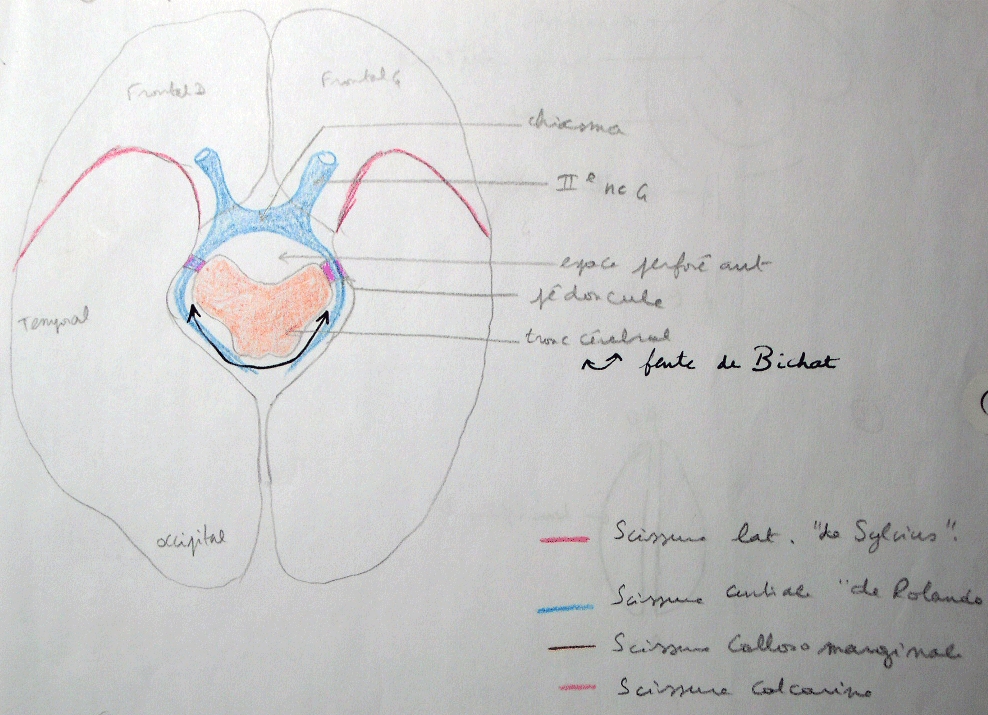 Frontal D
Frontal G
chiasma
II e nc G
espace perforé ant
pédoncule
tronc cérébral
fente de Bichat
Temporal
occipital
Scissure lat. "de Sylvius".
Scissure centrale "de Rolando
Scissure Calloso marginale
Scissure Calcarine